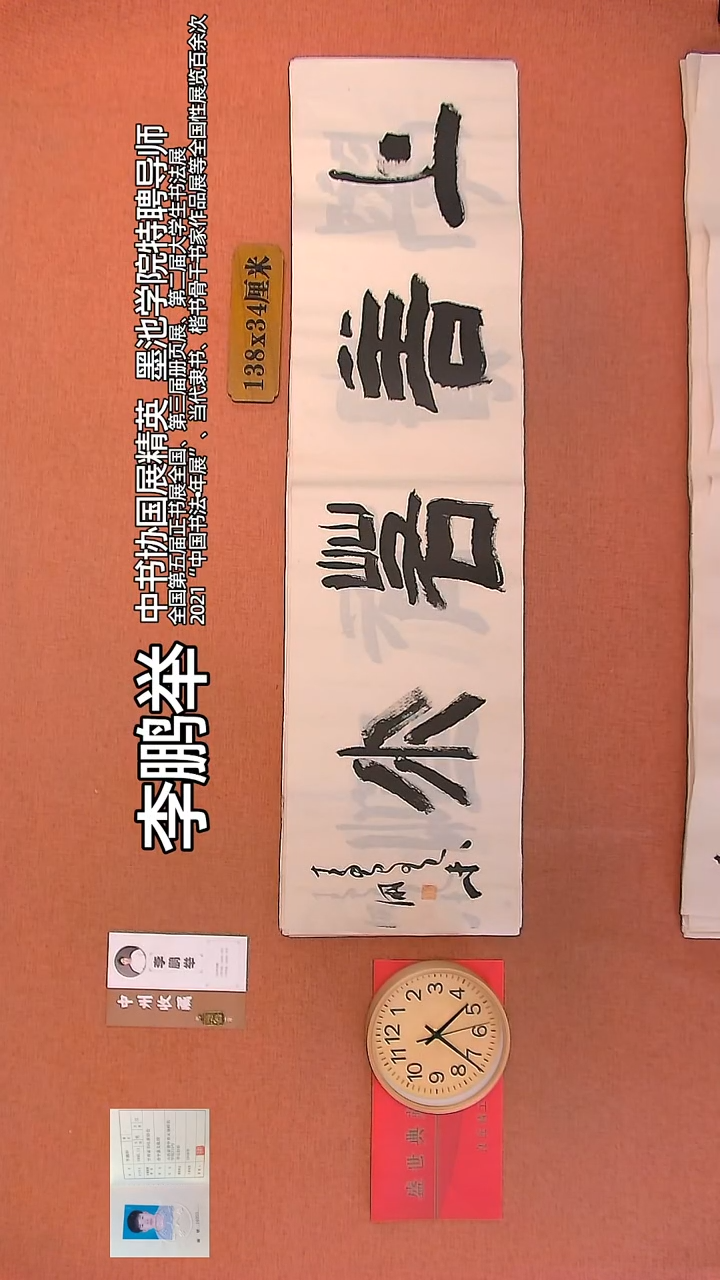 李鹏举
中书协国展精英 墨池学院特聘导师
全国第五届正书展全国、第三届册页展、第二届大学生书法展
2021“中国书法·年展”、当代隶书、楷书骨干书家作品展等全国性展览百余次
138x34厘米
上善若水
李鹏举
中州收藏
盛世典
12
1
2
3
4
5
6
7
8
9
10
11